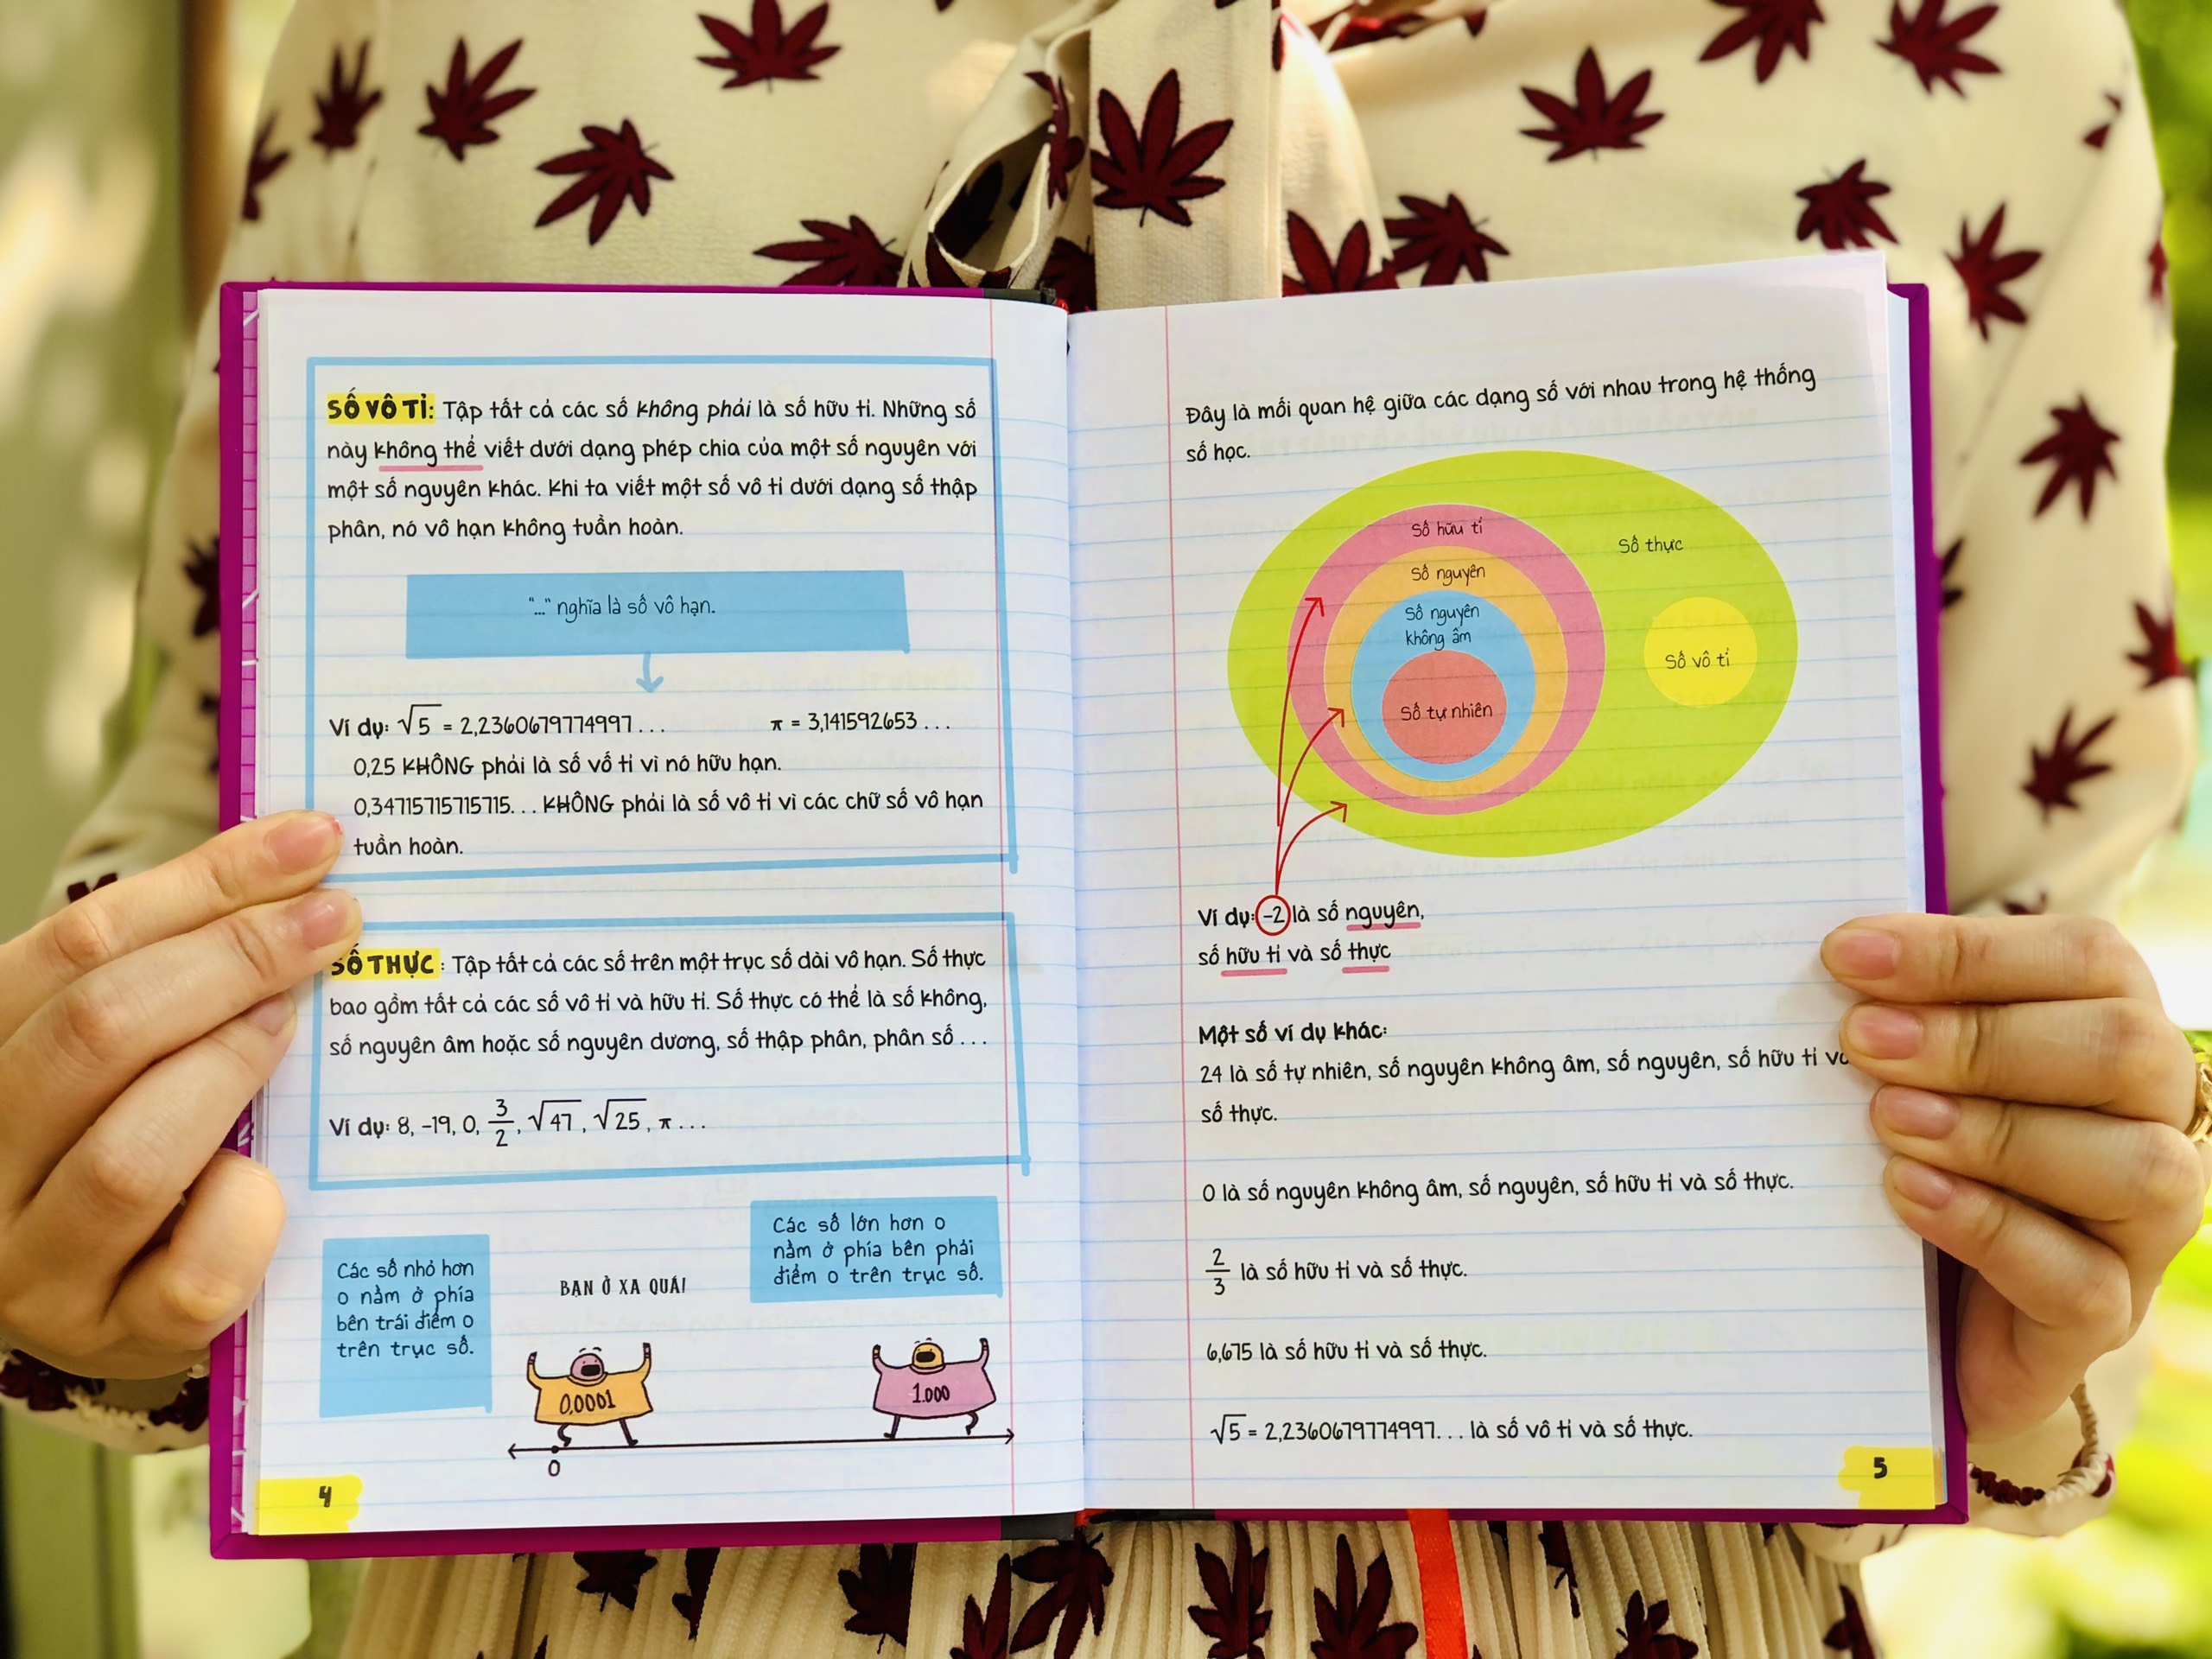 SỐ VÔ TỈ: Tập tất cả các số không phải là số hữu tỉ. Những số
này không thể viết dưới dạng phép chia của một số nguyên với
một số nguyên khác. Khi ta viết một số vô tỉ dưới dạng số thập
phân, nó vô hạn không tuần hoàn.
"..." nghĩa là số vô hạn.
Ví dụ: √5 = 2,2360679774997... π = 3,141592653...
0,25 KHÔNG phải là số vô tỉ vì nó hữu hạn.
0,34715715715715... KHÔNG phải là số vô tỉ vì các chữ số vô hạn
tuần hoàn.
SỐ THỰC: Tập tất cả các số trên một trục số dài vô hạn. Số thực
bao gồm tất cả các số vô tỉ và hữu tỉ. Số thực có thể là số không,
số nguyên âm hoặc số nguyên dương, số thập phân, phân số...
Ví dụ: 8, -19, 0, 3/2, √47, √25, π...
Các số nhỏ hơn
0 nằm ở phía
bên trái điểm 0
trên trục số.
BẠN Ở XA QUÁ!
Các số lớn hơn 0
nằm ở phía bên phải
điểm 0 trên trục số.
0,0001
1.000
0
4
Đây là mối quan hệ giữa các dạng số với nhau trong hệ thống
số học.
Số hữu tỉ
Số thực
Số nguyên
Số nguyên
không âm
Số vô tỉ
Số tự nhiên
Ví dụ: -2 là số nguyên,
số hữu tỉ và số thực
Một số ví dụ khác:
24 là số tự nhiên, số nguyên không âm, số nguyên, số hữu tỉ
số thực.
0 là số nguyên không âm, số nguyên, số hữu tỉ và số thực.
2/3 là số hữu tỉ và số thực.
6,675 là số hữu tỉ và số thực.
√5 = 2,2360679774997... là số vô tỉ và số thực.
5